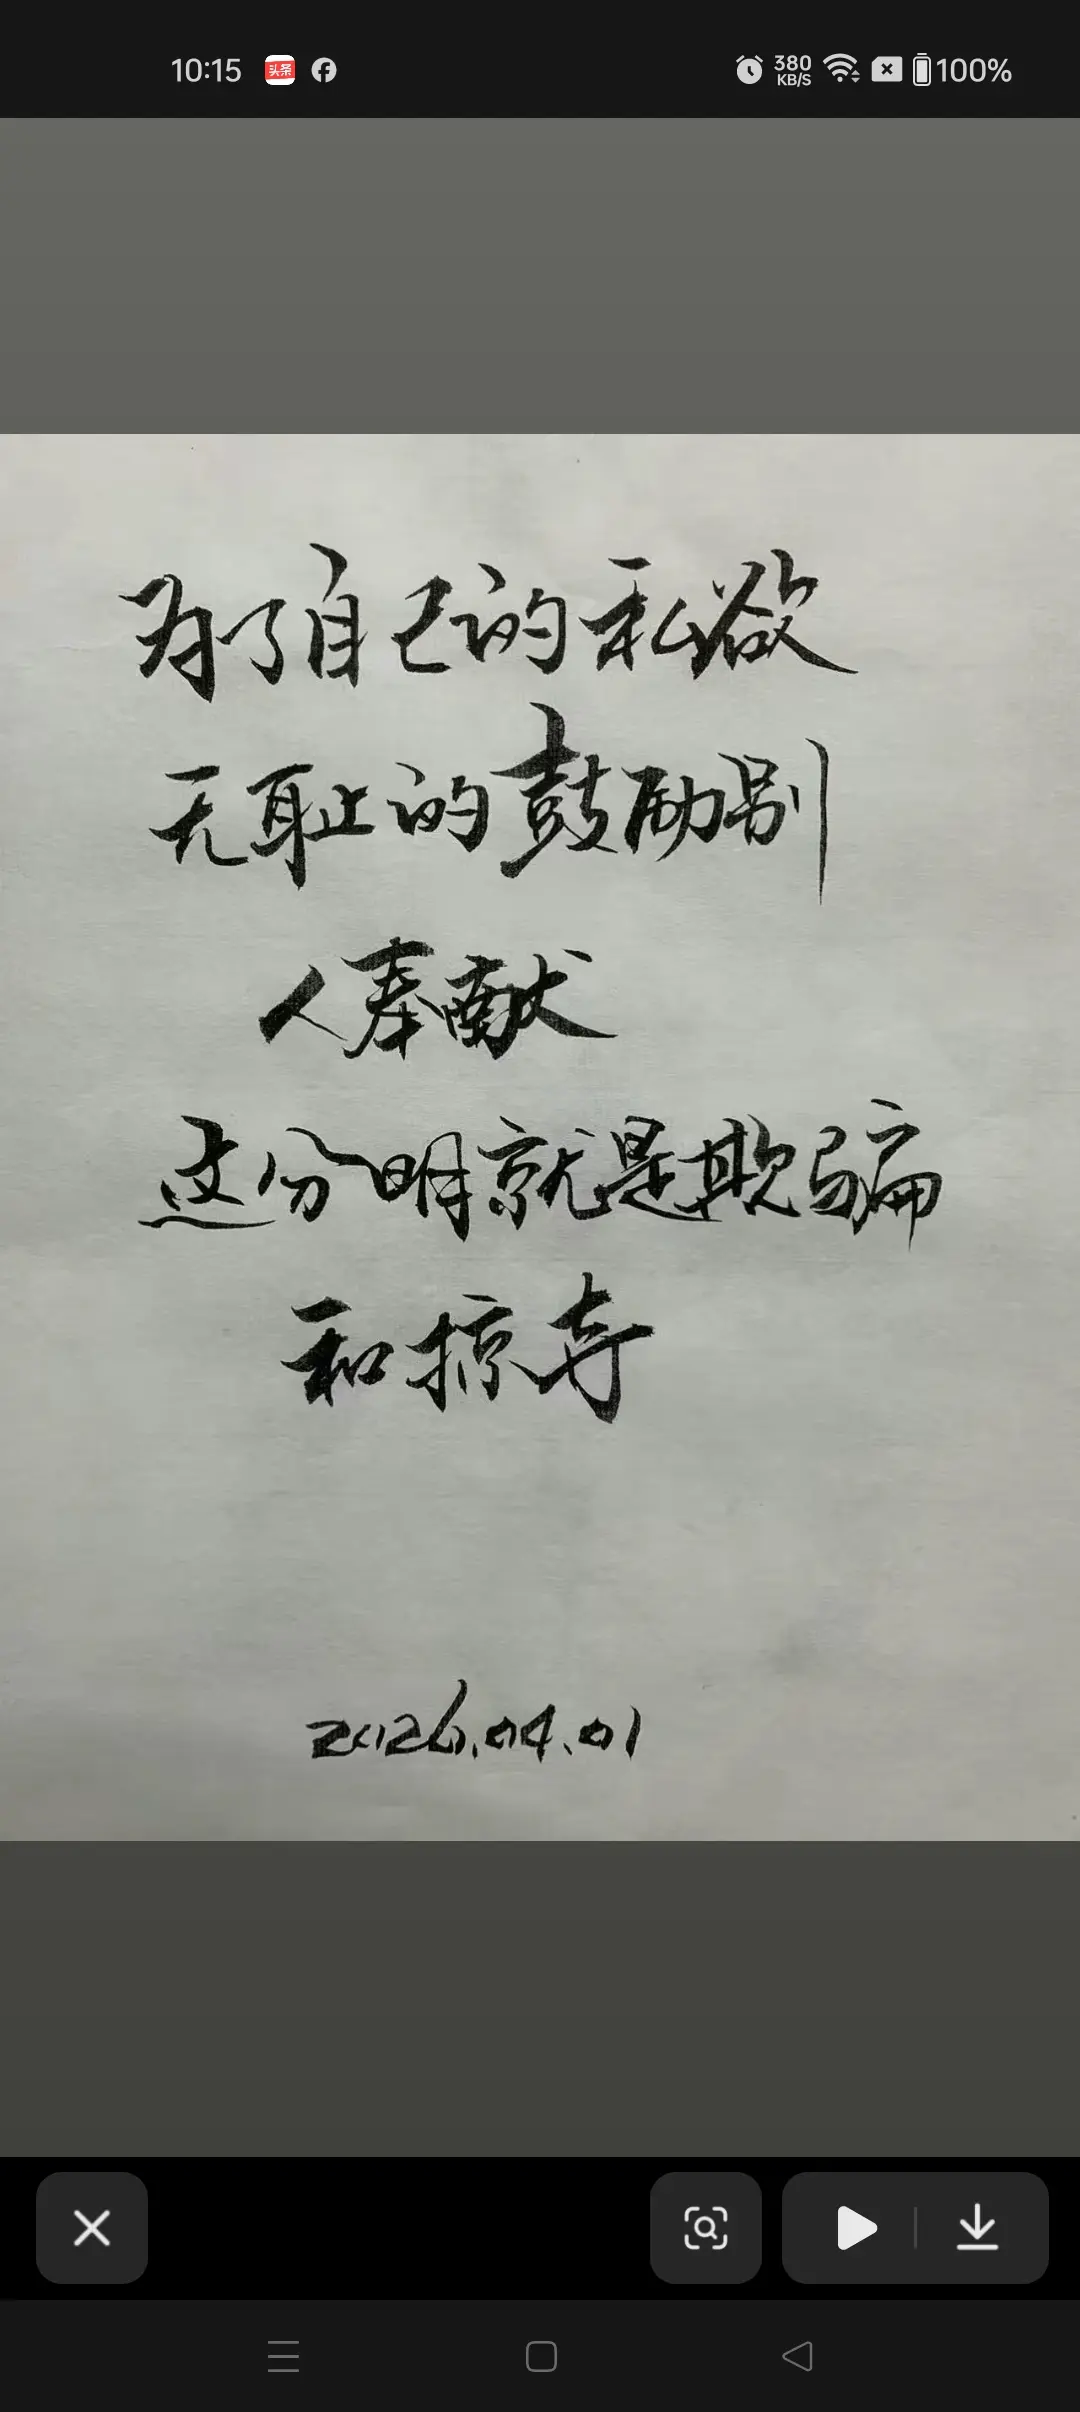 10:15 头条 380 KB/S 100%
为了自己的私欲
无耻的鼓励别
人奉献
这分明就是欺骗
和掠夺
2026.04.01